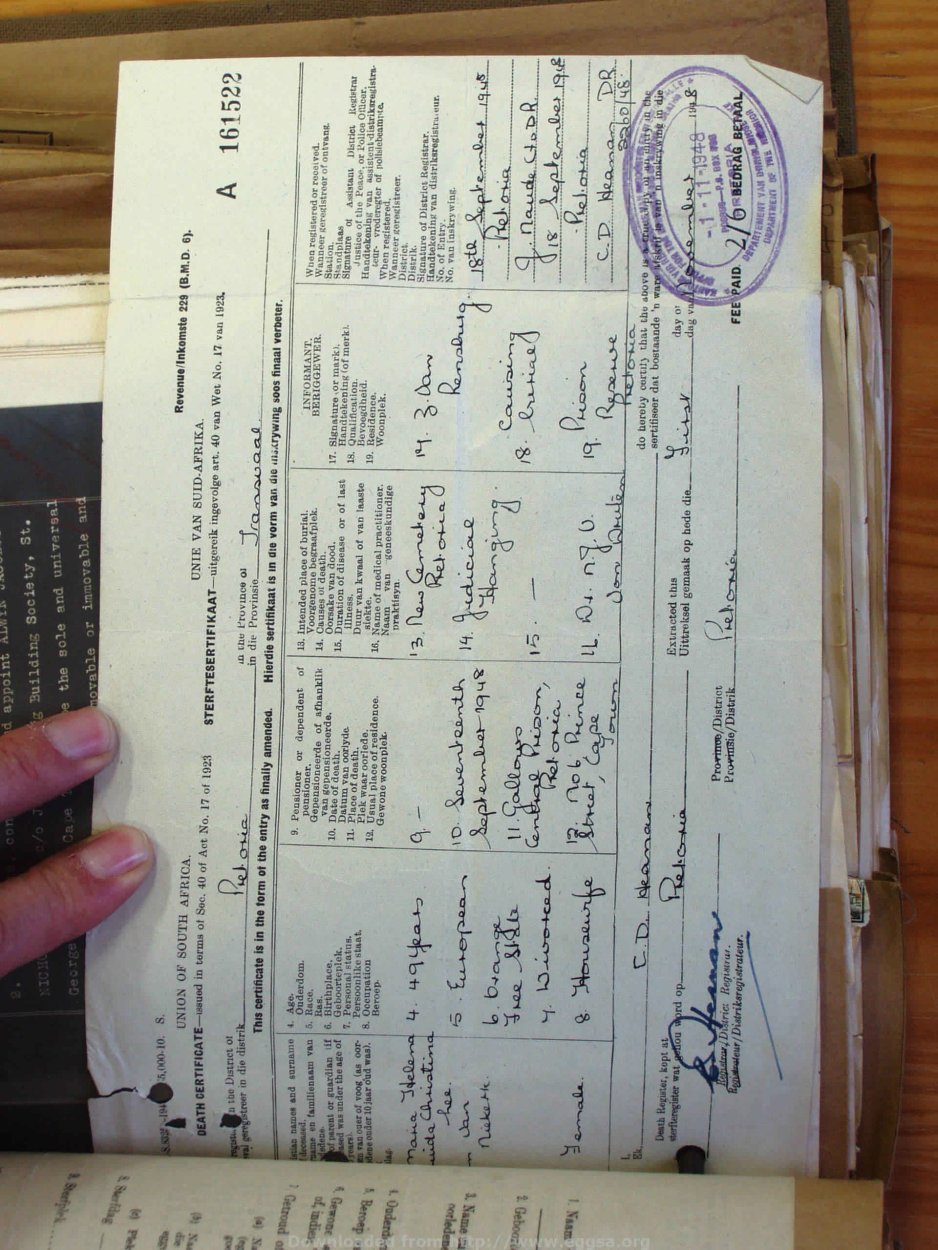 appoint
con
Building Society, St.
c/o J
Cape
the sole and universal
George
movable or immovable and
S.
Revenue/Inkomste 229 (B.M.D. 6).
A 161522
UNION OF SOUTH AFRICA.
UNIE VAN SUID-AFRIKA.
DEATH CERTIFICATE—issued in terms of Sec. 40 of Act No. 17 of 1923
STERFTESERTIFIKAAT—uitgereik ingevolge art. 40 van Wet No. 17 van 1923.
in the District of
geregistreer in die distrik
Pretoria
in the Province of
in die Provinsie
Transvaal
This certificate is in the form of the entry as finally amended. Hierdie sertifikaat is in die vorm van die inskrywing soos finaal verbeter.
names and surname
deceased.
en familienaam van
of parent or guardian (if
was under the age of
years).
van ouer of voog (as oor-
onder 10 jaar oud was).
4. Age.
Ouderdom.
5. Race.
Ras.
6. Birthplace.
Geboorteplek.
7. Personal status.
Persoonlike staat.
8. Occupation
Beroep.
9. Pensioner or dependent of
pensioner.
Gepensioneerde of afhanklik
van gepensioneerde.
10. Date of death.
Datum van oorlyde.
11. Place of death.
Plek waar oorlede.
12. Usual place of residence.
Gewone woonplek.
13. Intended place of burial.
Voorgenome begraafplek.
14. Causes of death.
Oorsake van dood.
15. Duration of disease or of last
illness.
Duur van kwaal of van laaste
siekte.
16. Name of medical practitioner.
Naam van geneeskundige
praktisyn.
INFORMANT.
BERIGGEWER.
17. Signature (or mark).
Handtekening (of merk).
18. Qualification.
Bevoegdheid.
19. Residence.
Woonplek.
When registered or received.
Wanneer geregistreer of ontvang.
Station.
Standplaas
Signature of Assistant District Registrar
Justice of the Peace, or Police Officer.
Handtekening van assistent-distriksregistra-
teur- vrederegter of polisiebeampte.
When registered.
Wanneer geregistreer.
District.
Distrik.
Signature of District Registrar.
Handtekening van distriksregistrateur.
No. of Entry.
No. van inskrywing.
Maria Helena
Christina
nee
van
Niekerk.
Female.
4. 49 years
5. European
6. Orange
Free State
7. Divorced
8 Housewife
9. —
10. Seventeenth
September 1948
11. Gallows
Central Prison,
Pretoria,
12. No 6 Prince
Street, Cape
Town
13. New Cemetery
Pretoria
14. Judicial
Hanging.
15. —
16 Dr. N.J.V.
van Druten
17. B. van
Rensburg.
18. Causing
burial
19. Prison
Reserve
Pretoria
18th September 1948
Pretoria
J. Naude
18 September 1948
Pretoria
C.D. Heanan DR
2260/48.
I,
Ek,
C.D. Heanan
do hereby certify that the above is a true copy of an entry in the
sertifiseer dat bostaande 'n ware afskrif is van 'n inskrywing in die
Death Register, kept at
sterfteregister wat gehou word op
Pretoria
Extracted this
Uittreksel gemaak op hede die
First
day of
dag van
November 1948
Registrar/District Registrar.
Registrateur/Distriksregistrateur.
Province/District
Provinsie/Distrik
Pretoria
FEE PAID 2/6 BEDRAG BETAAL
-1-11-1948
PRETORIA
DEPARTMENT OF THE
Downloaded from http://www.eggsa.org